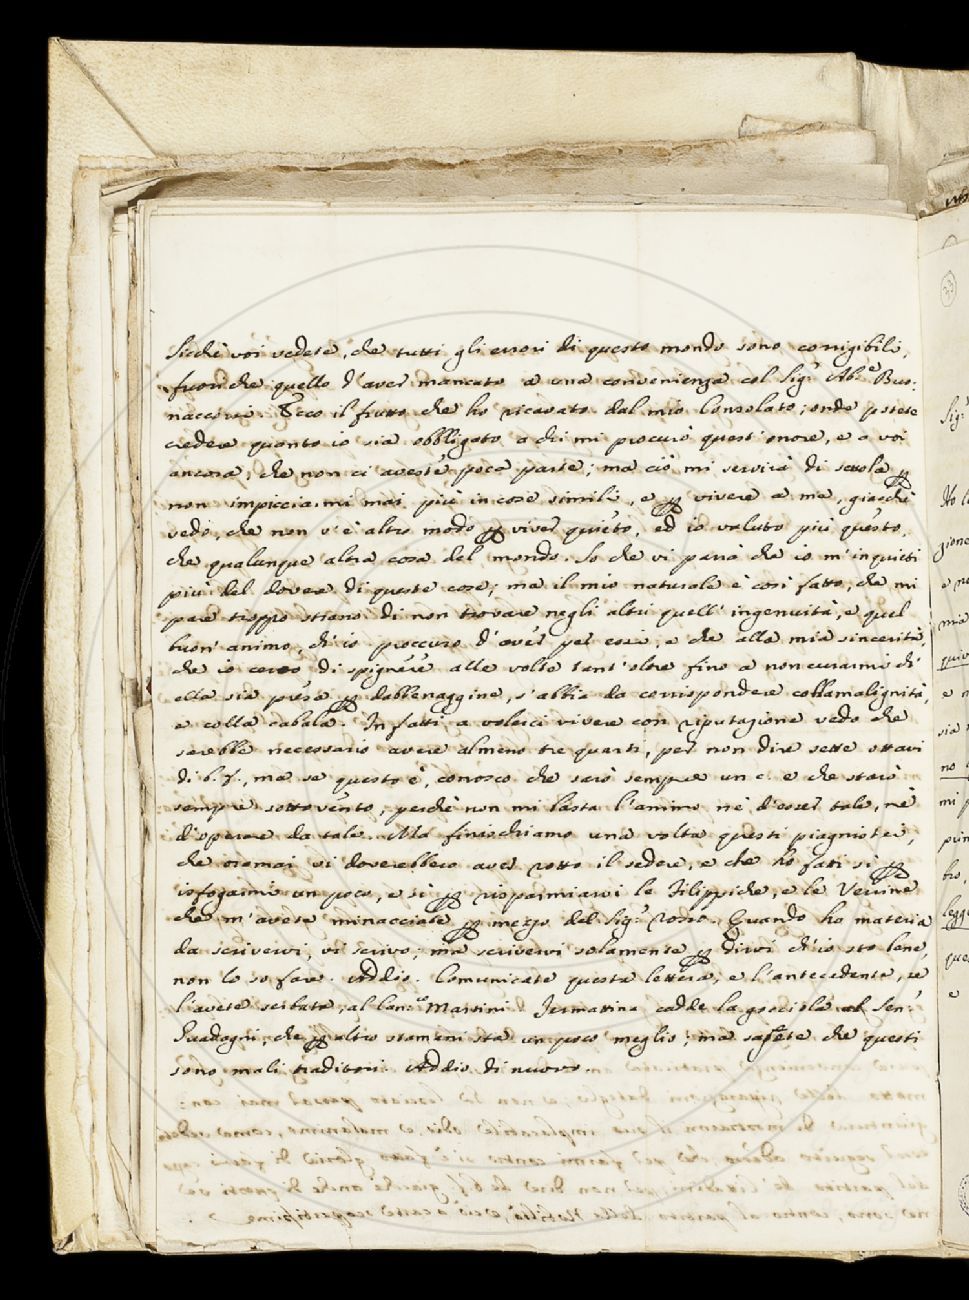 Sicchè voi vedete, che tutti gli errori di questo mondo sono corrigibili,
fuorichè quello d'aver mancato a una convenienza col Sig.r Ab.e Buo:
naccorsi. Ecco il frutto che ho ricavato dal mio Consolato; onde potete
credere quanto io sia obbligato a chi mi procurò quest'onore, e a voi
ancora, che non ci aveste poca parte; ma ciò mi servirà di scuola p
non impicciarmi mai più in cose simili, e p vivere a me, giacchè
vedo, che non v'è altro modo p viver quieto, ed io valuto più questo,
che qualunque altra cosa del mondo. So che vi parrà che io m'inquieti
più del dovere di queste cose; ma il mio naturale è così fatto, che mi
pare troppo strano di non trovare negli altri quell'ingenuità, e quel
buon'animo, ch'io proccuro d'aver per essi, e che alla mia sincerità,
che io cerco di spignere alle volte tant'oltre fino a non curarmi ch'
ella sia presa p dabbenaggine, s'abbia da corrispondere colla malignità,
e colla cabala. In fatti a volerci vivere con riputazione vedo che
sarebbe necessario avere almeno tre quarti, per non dire sette ottavi
di b. f., ma se questo è, conosco che sarò sempre un c. e che starò
sempre sottovento, perchè non mi basta l'animo nè d'esser tale, nè
d'operare da tale. Ma finischiamo una volta questi piagnistei,
che oramai vi doverebbero aver rotto il sedere, e che ho fatti sì p
isfogarmi un poco, e sì p risparmiarvi le Filippiche, e le Verrine
che m'avete minacciate p mezzo del Sig.r Rosso. Quando ho materia
da scrivervi, vi scrivo; ma scrivervi solamente p dirvi ch'io sto bene,
non lo so fare. Addio. Comunicate questa lettera, e l'antecedente, se
l'avete serbata, al Can.co Martini. Jermattina cadde la gocciola al Sen.r
Guadagni, che p altro stamani sta un poco meglio; ma sapete che questi
sono mali traditori. Addio di nuovo.
Sig.r
gione
e
mia
e
sia
no
mi
leggi
que
e